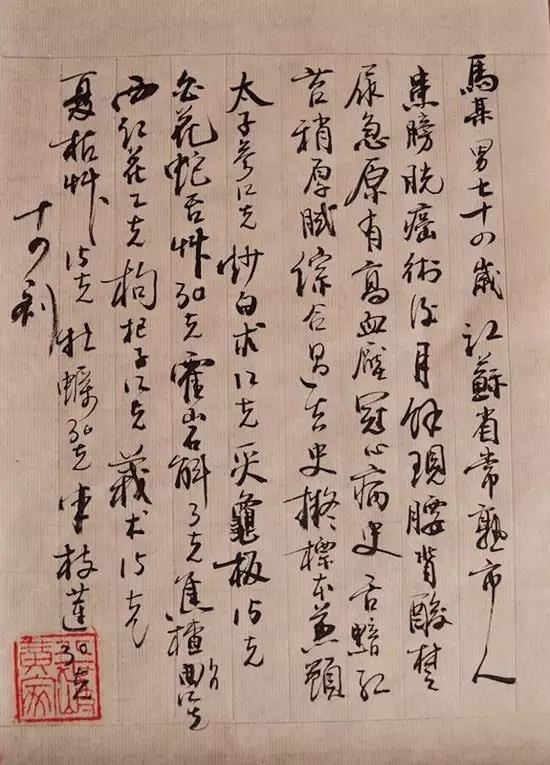 馬某 男七十四歲 江蘇省常熟市人
患膀胱癌術後月餘現腰背酸楚
尿急原有高血壓冠心病史舌黯紅
苔稍厚膩綜合史擬標本兼顧
太子參12克 炒白术12克 炙龜板15克
白花蛇舌艸30克 霍山石斛3克 焦楂曲各12克
西紅花2克 枸杞子12克 莪术15克
夏枯艸15克 牡蠣30克 半枝蓮30克
十四劑